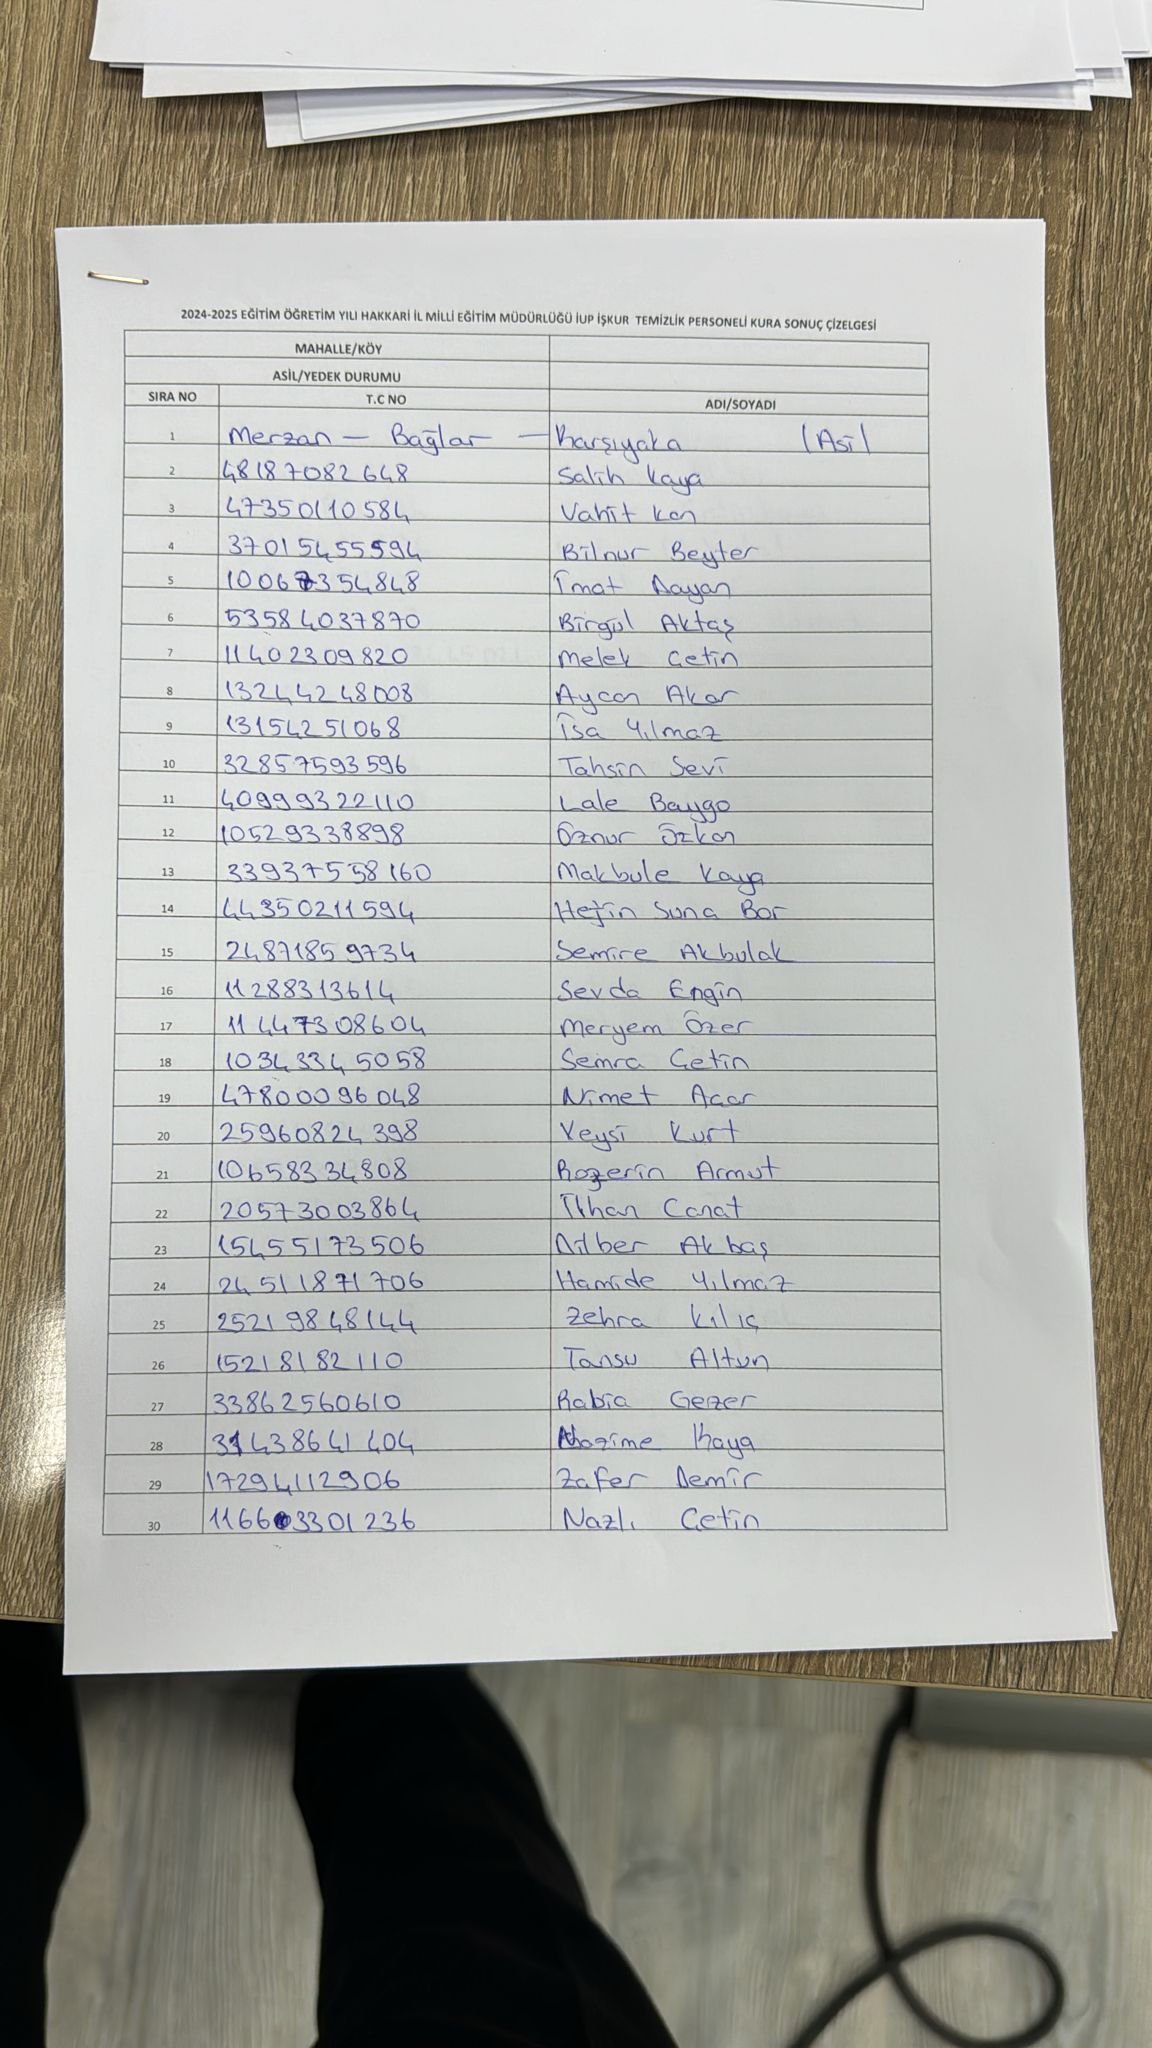 2024-2025 EĞİTİM ÖĞRETİM YILI HAKKARİ İL MİLLİ EĞİTİM MÜDÜRLÜĞÜ İUP İŞKUR TEMİZLİK PERSONELİ KURA SONUÇ ÇİZELGESİ
MAHALLE/KÖY
ASİL/YEDEK DURUMU
SIRA NO T.C NO ADI/SOYADI
1 Merzan — Bağlar — Karşıyaka (Asil
2 48187082648 Salih Kaya
3 47350110584 Vahit Kan
4 37015455594 Bilnur Beyter
5 10067354848 İmat Dayan
6 53584037870 Birgül Aktaş
7 11402309820 Melek Çetin
8 13244248008 Aycan Akar
9 13154251068 İsa Yılmaz
10 32857593596 Tahsin Sevi
11 40999322110 Lale Baygo
12 10529338898 Öznur Özkan
13 33937558160 Makbule Kaya
14 44350211594 Hejin Suna Bor
15 24871859734 Semire Akbulak
16 11288313614 Sevda Engin
17 11447308604 Meryem Özer
18 10343345058 Semra Çetin
19 47800096048 Nimet Acar
20 25960824398 Veysi Kurt
21 10658334808 Rozerin Armut
22 20573003864 İlhan Canat
23 15455173506 Dilber Akbaş
24 24511871706 Hamide Yılmaz
25 25219848144 Zehra Kılıç
26 15218182110 Tansu Altun
27 33862560610 Rabia Gezer
28 31438641404 Nazime Kaya
29 17294112906 Zafer Demir
30 116603301236 Nazlı Çetin